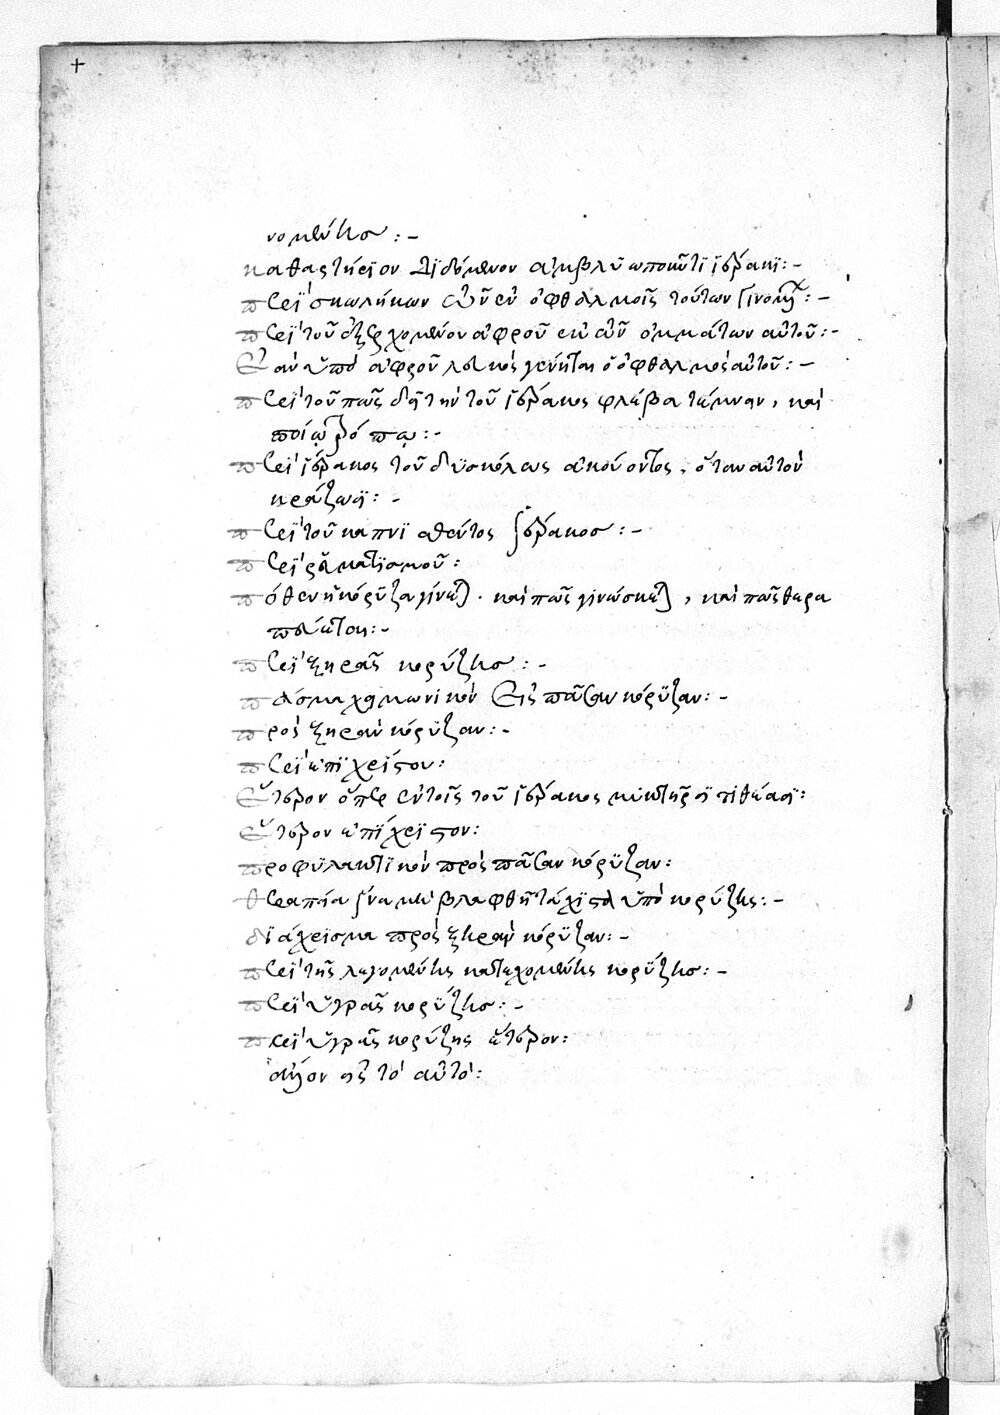 +
νομένης :-
καθαρτήριον διδόμενον ἀμβλυωποῦντι ἱέρακι :-
περὶ σκωλήκων τῶν ἐν ὀφθαλμοῖς τούτων γινομ :-
περὶ τοῦ ἐξερχομένου ἀφροῦ ἐκ τῶν ὀμμάτων αὐτοῦ :-
Ἐὰν ὑπὸ ἀφροῦ λευκὸς γένηται ὁ ὀφθαλμὸς αὐτοῦ :-
περὶ τοῦ πῶς δεῖ τὴν τοῦ ἱέρακος φλέβα τέμνειν, καὶ
ποίῳ τρόπῳ :-
περὶ ἱέρακος τοῦ δυσκόλως ἀκούοντος, ὅταν αὐτὸν
κράζωσι :-
περὶ τοῦ καπνισθέντος ἱέρακος :-
περὶ ῥευματισμοῦ :
πόθεν ἡ κόρυζα γίνεται. καὶ πῶς γινώσκεται, καὶ πῶς θερα
πεύεται :-
περὶ ξηρᾶς κορύζης :-
πείσμα χαμωνικὸν Εἰς πᾶσαν κόρυζαν :-
πρὸς ξηρὰν κόρυζαν :-
περὶ ἐπιχρίστου :
Ἕτερον ὅπερ ἐν τοῖς τοῦ ἱέρακος μυκτῆρσι τιθέασι :
Ἕτερον ἐπίχριστον :
προφυλακτικὸν πρὸς πᾶσαν κόρυζαν :
θεραπεία ἵνα μὴ βλαφθῇ τάχιστα ὑπὸ κορύζης :-
διάχρισμα πρὸς ξηρὰν κόρυζαν :-
περὶ τῆς λεγομένης κατεχομένης κορύζης :-
περὶ ὑγρᾶς κορύζης :-
περὶ ὑγρᾶς κορύζης ἕτερον :
εἰς τὸ αὐτό :